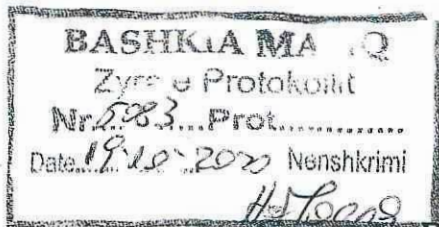 BASHKIA MA Q
Zyra e Protokollit
Nr. 5083 Prot.
Date 19.10.2020 Nenshkrimi